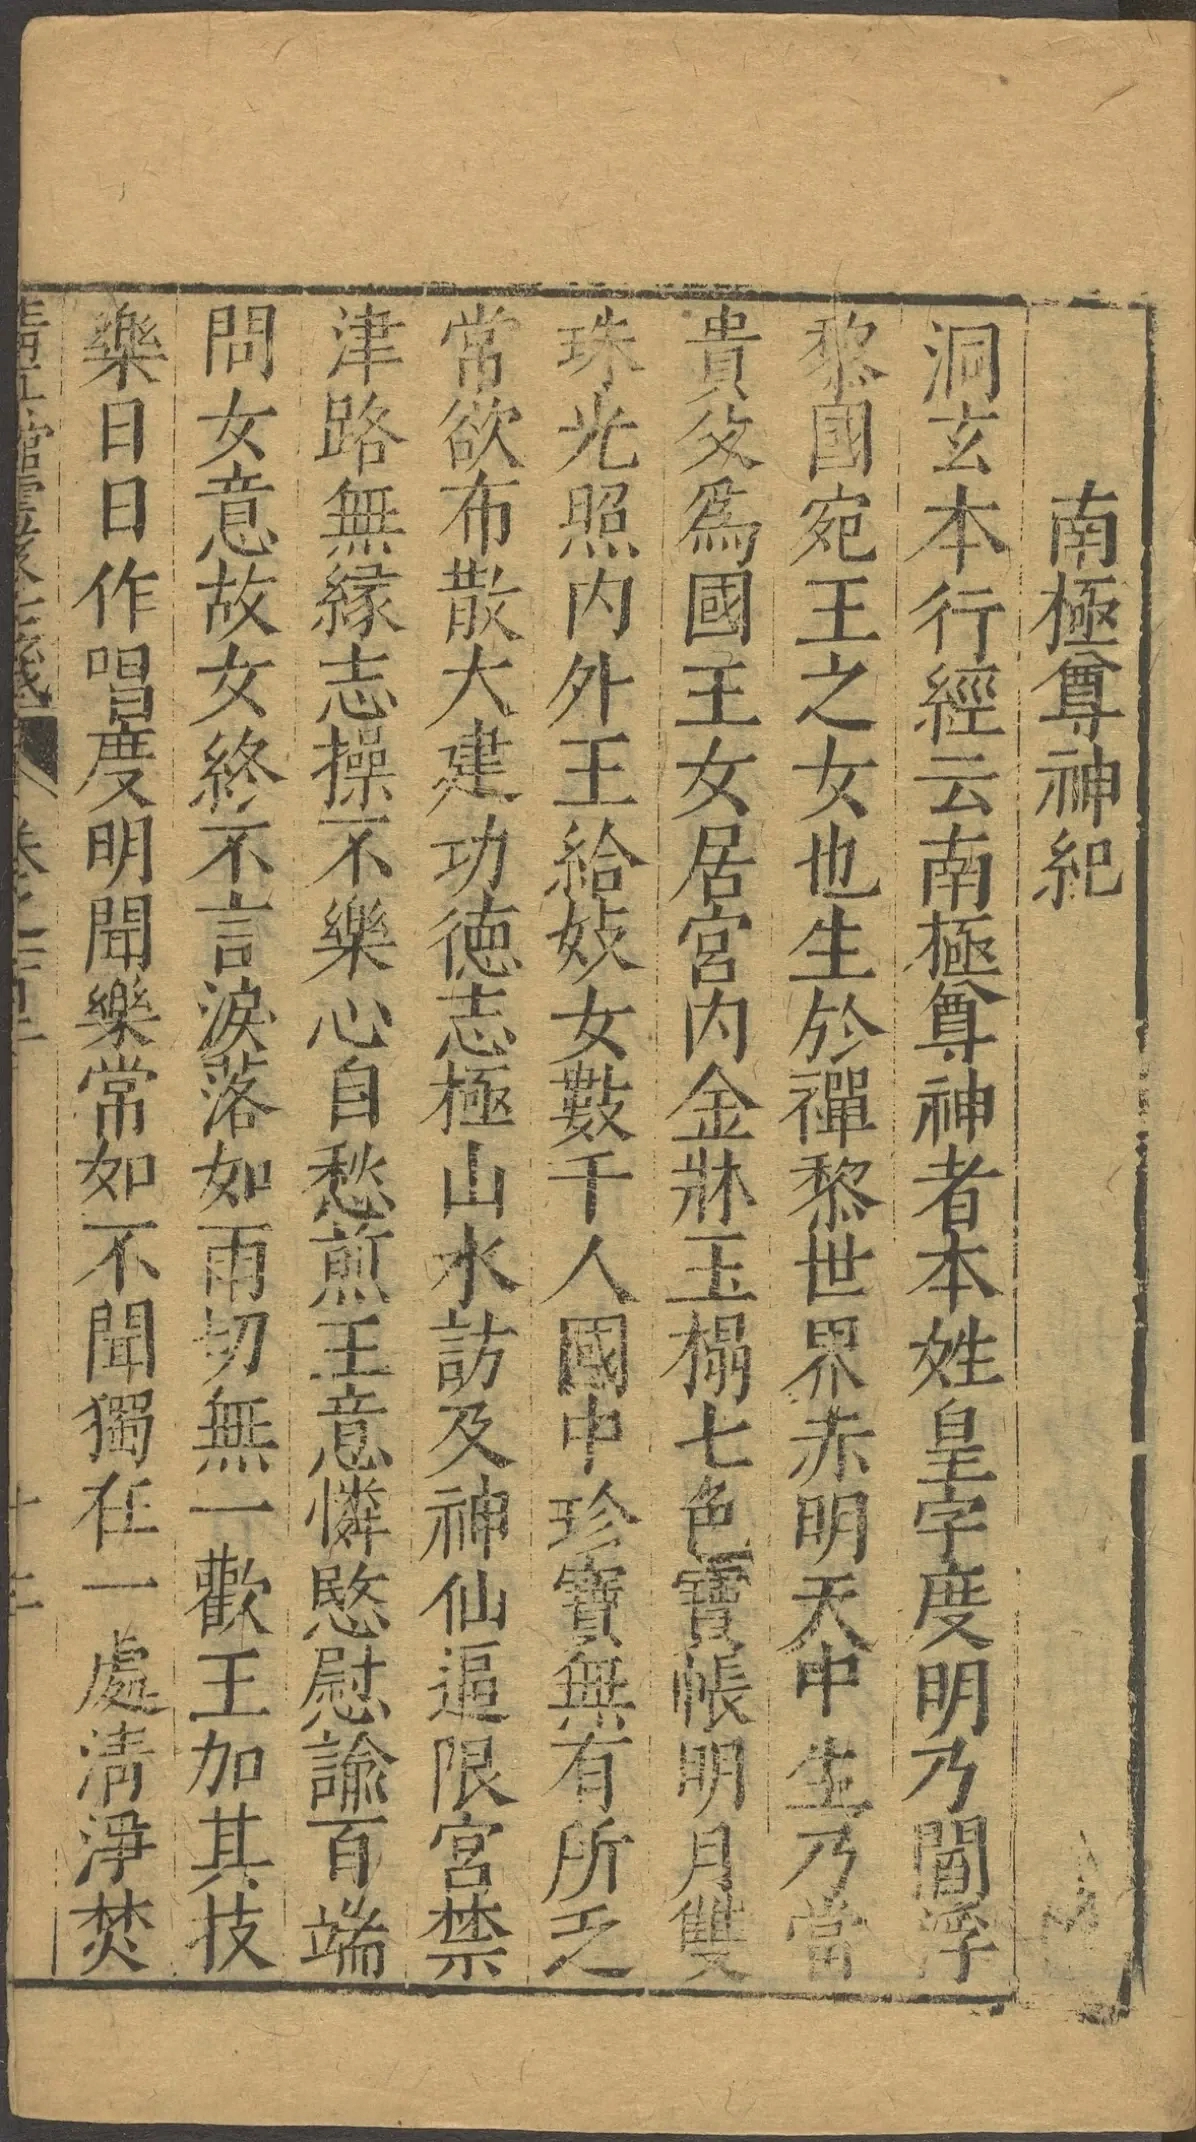 南極尊神紀
洞玄本行經云南極尊神者本姓皇字度明乃閻浮
黎國宛王之女也生於禪黎世界赤明天中生乃當
貴父為國王女居宮內金牀玉榻七色寶帳明月雙
珠光照內外王給妓女數千人國中珍寶無有所乏
常欲布散大建功德志極山水訪及神仙逼限宮禁
津路無緣志操不樂心自愁煎王意憐愍慰諭百端
問女意故女終不言淚落如雨切無一歡王加其技
樂日日作唱度明聞樂常如不聞獨在一處清淨焚